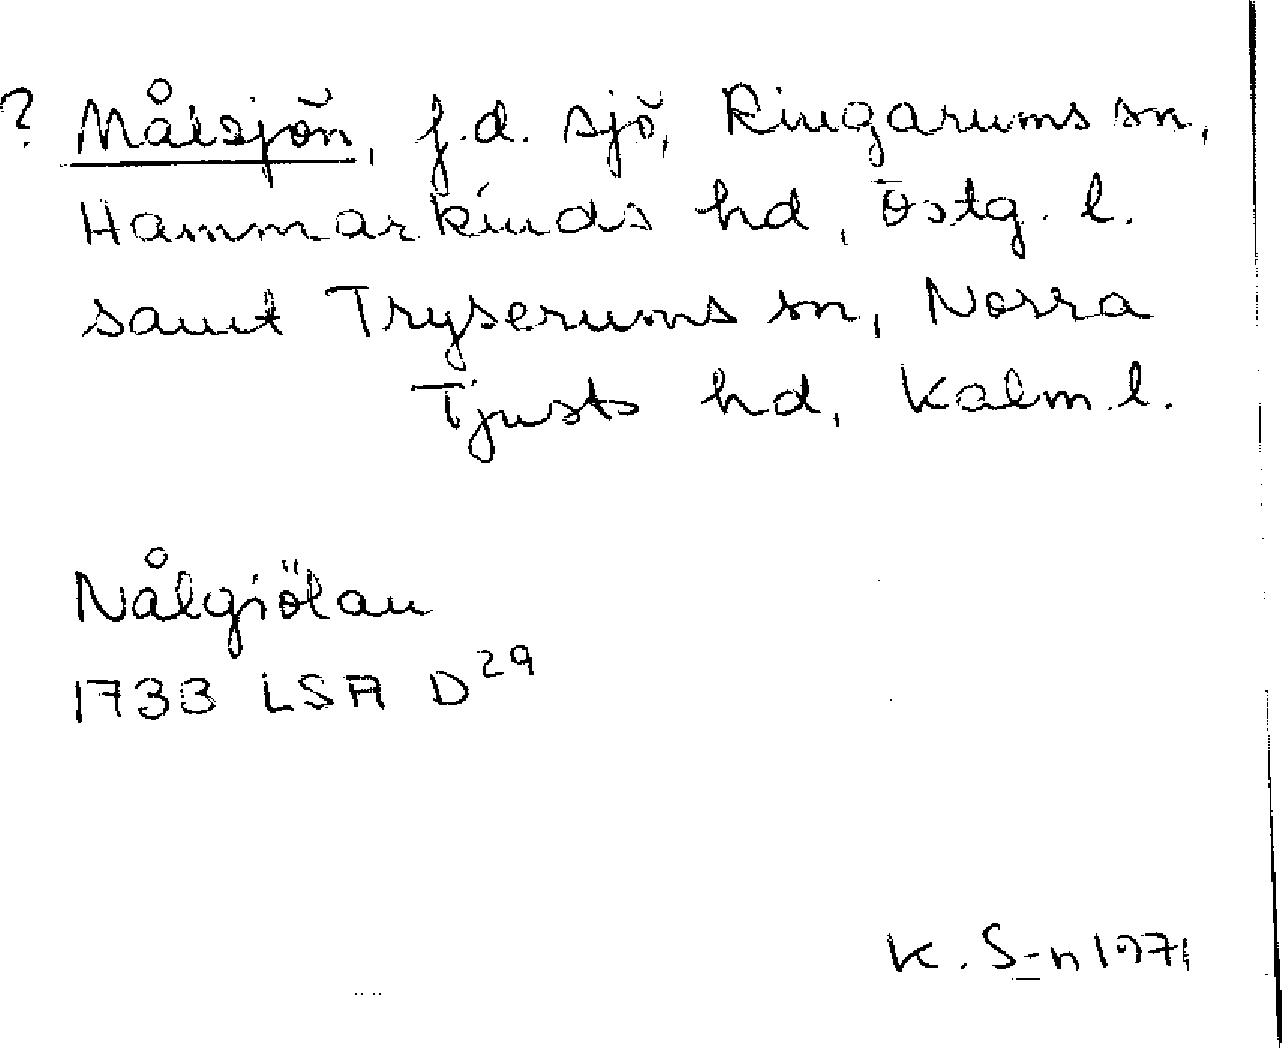 ? Målsjön, f.d. sjö, Ringarums sn,
Hammarkinds hd, Östg. l.
samt Tryserums sn, Norra
Tjusts hd, Kalm. l.
Nålgiölan
1733 LSA D29
K. S-n 1971